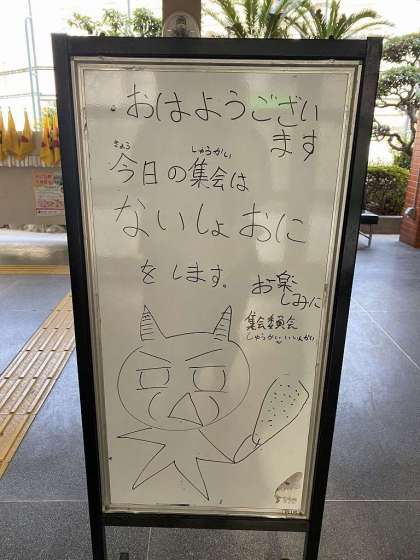 おはようござい
ます
きょう しゅうかい
今日の集会は
ないしょおに
をします。
お楽
しみに
集会委員会
しゅうかいいいんかい